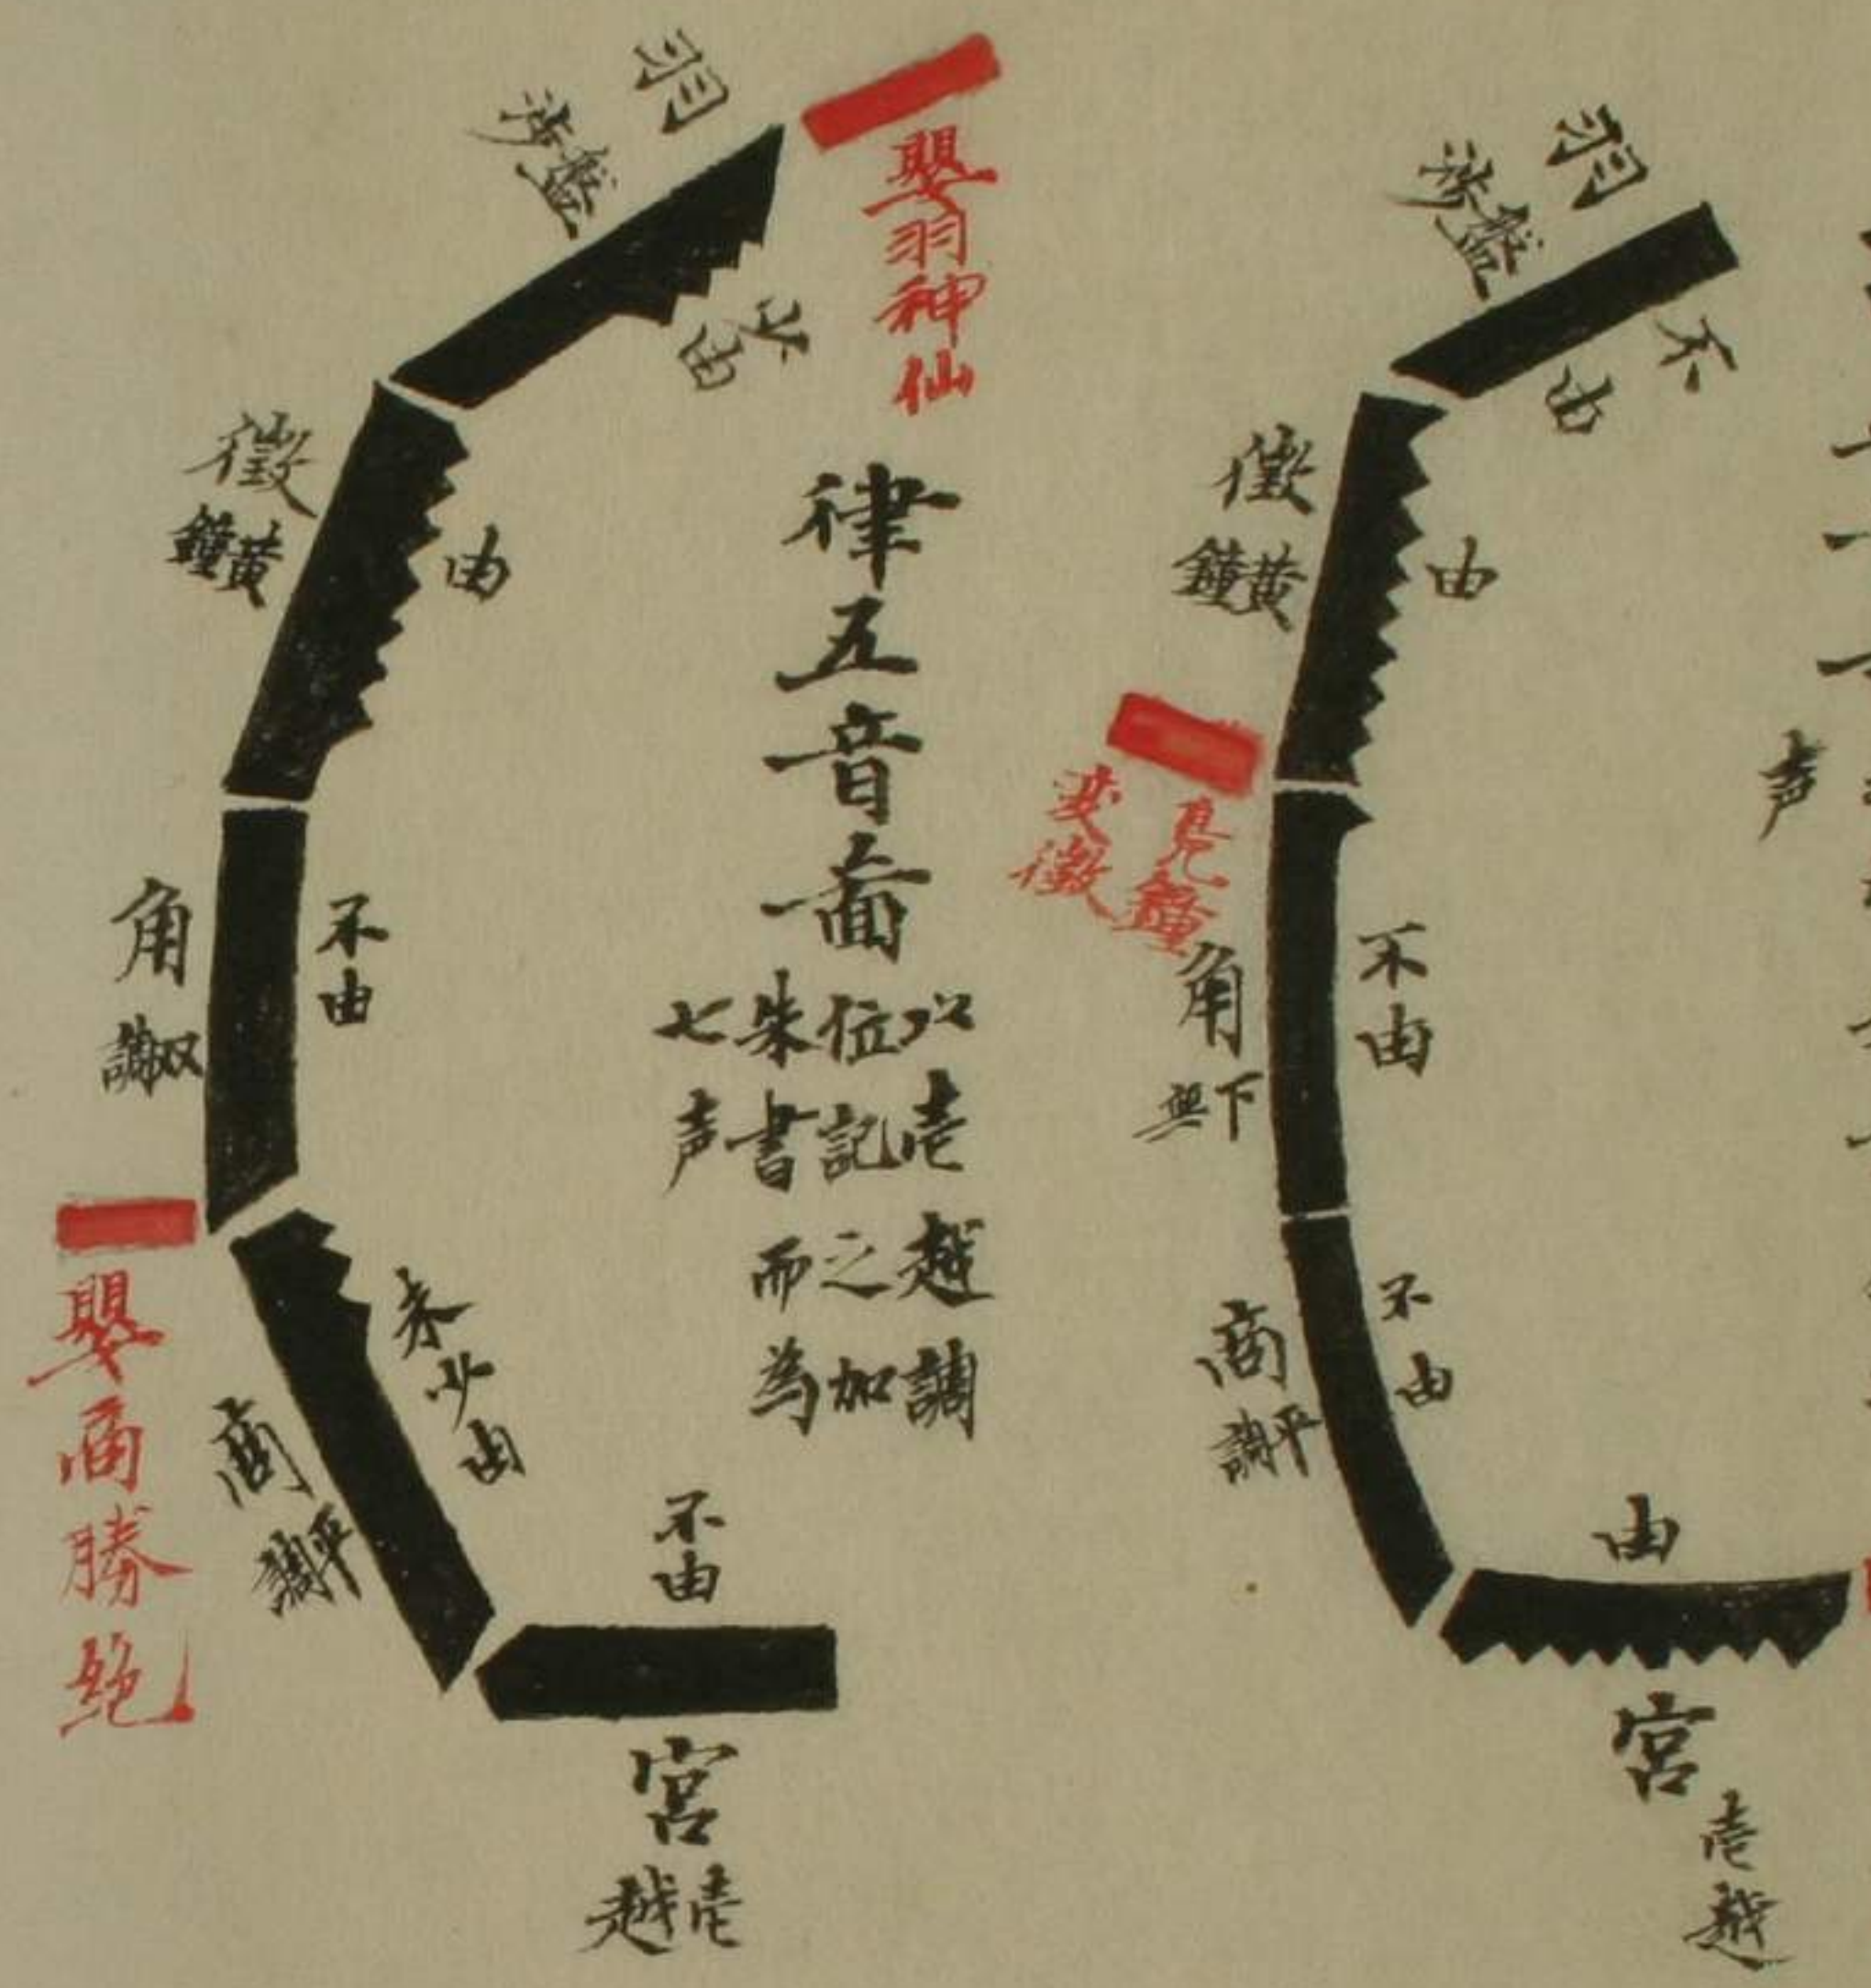 声
羽
盤渉
不由
徴
黄鐘
由
鳧鐘
変徴
角
下無
不由
商
平調
不由
由
宮
壱越
律五音啚
以壱越調
位記之加
朱書而為
七声
嬰羽神仙
羽
盤渉
少由
徴
黄鐘
由
角
双調
不由
嬰商勝絶
商
平調
末少由
不由
宮
壱越